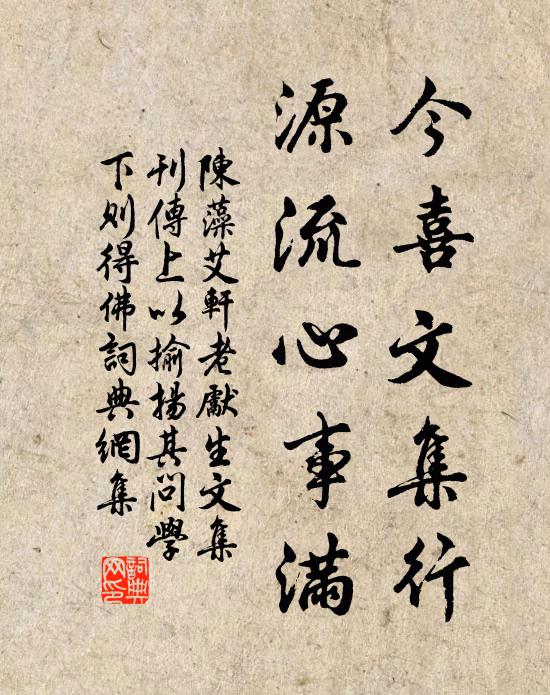 今喜文集行
源流心事滿
陳藻艾軒老獻生文集
刊傳上以揄揚其問學
下则得佛詞典網集
詞典網印